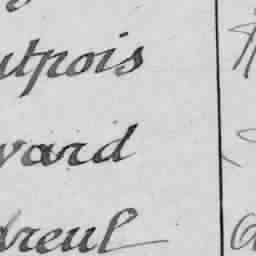 utpois
vard
dreul